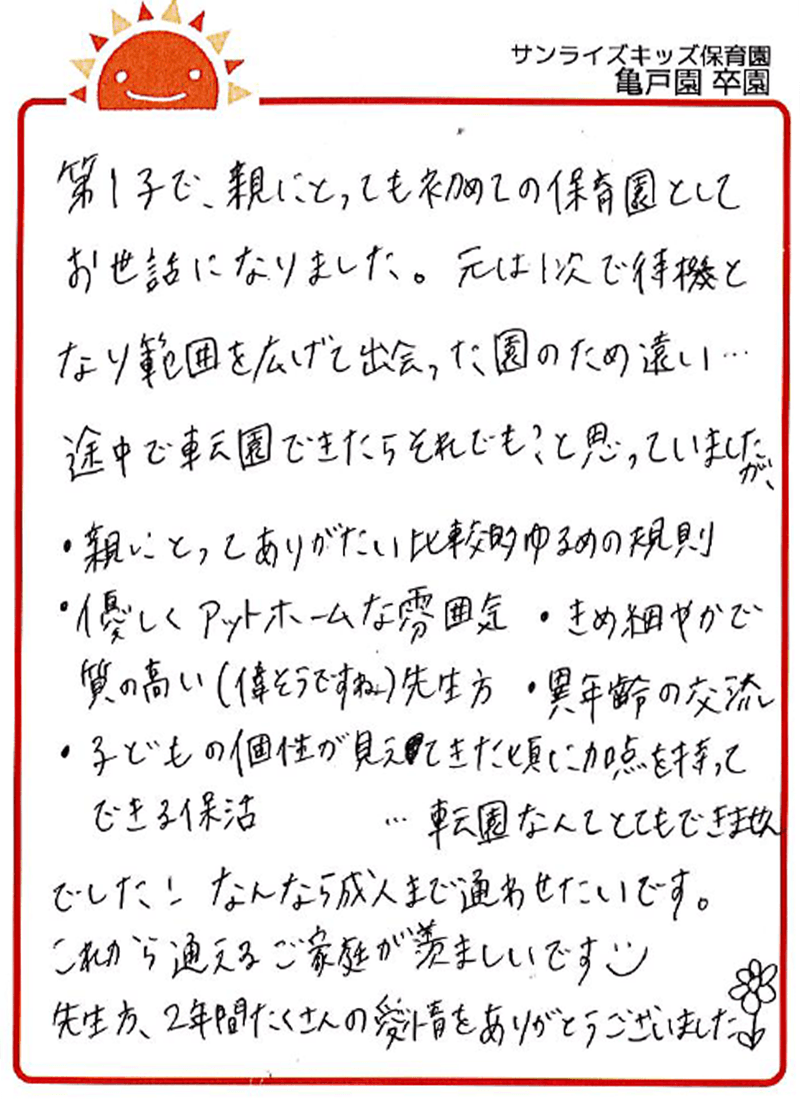 サンライズキッズ保育園
亀戸園 卒園
第1子で、親にとっても初めての保育園として
お世話になりました。元は1次で待機と
なり範囲を広げて出会った園のため遠い…
途中で転園できたらそれでも?と思っていましたが、
・親にとってありがたい比較的ゆるめの規則
・優しくアットホームな雰囲気 ・きめ細やかで
質の高い(偉そうですね)先生方 ・異年齢の交流
・子どもの個性が見えてきた頃に加点を持って
できる保活 …転園なんてとてもできません
でした! なんなら成人まで通わせたいです。
これから通えるご家庭が羨ましいです
先生方、2年間たくさんの愛情をありがとうございました